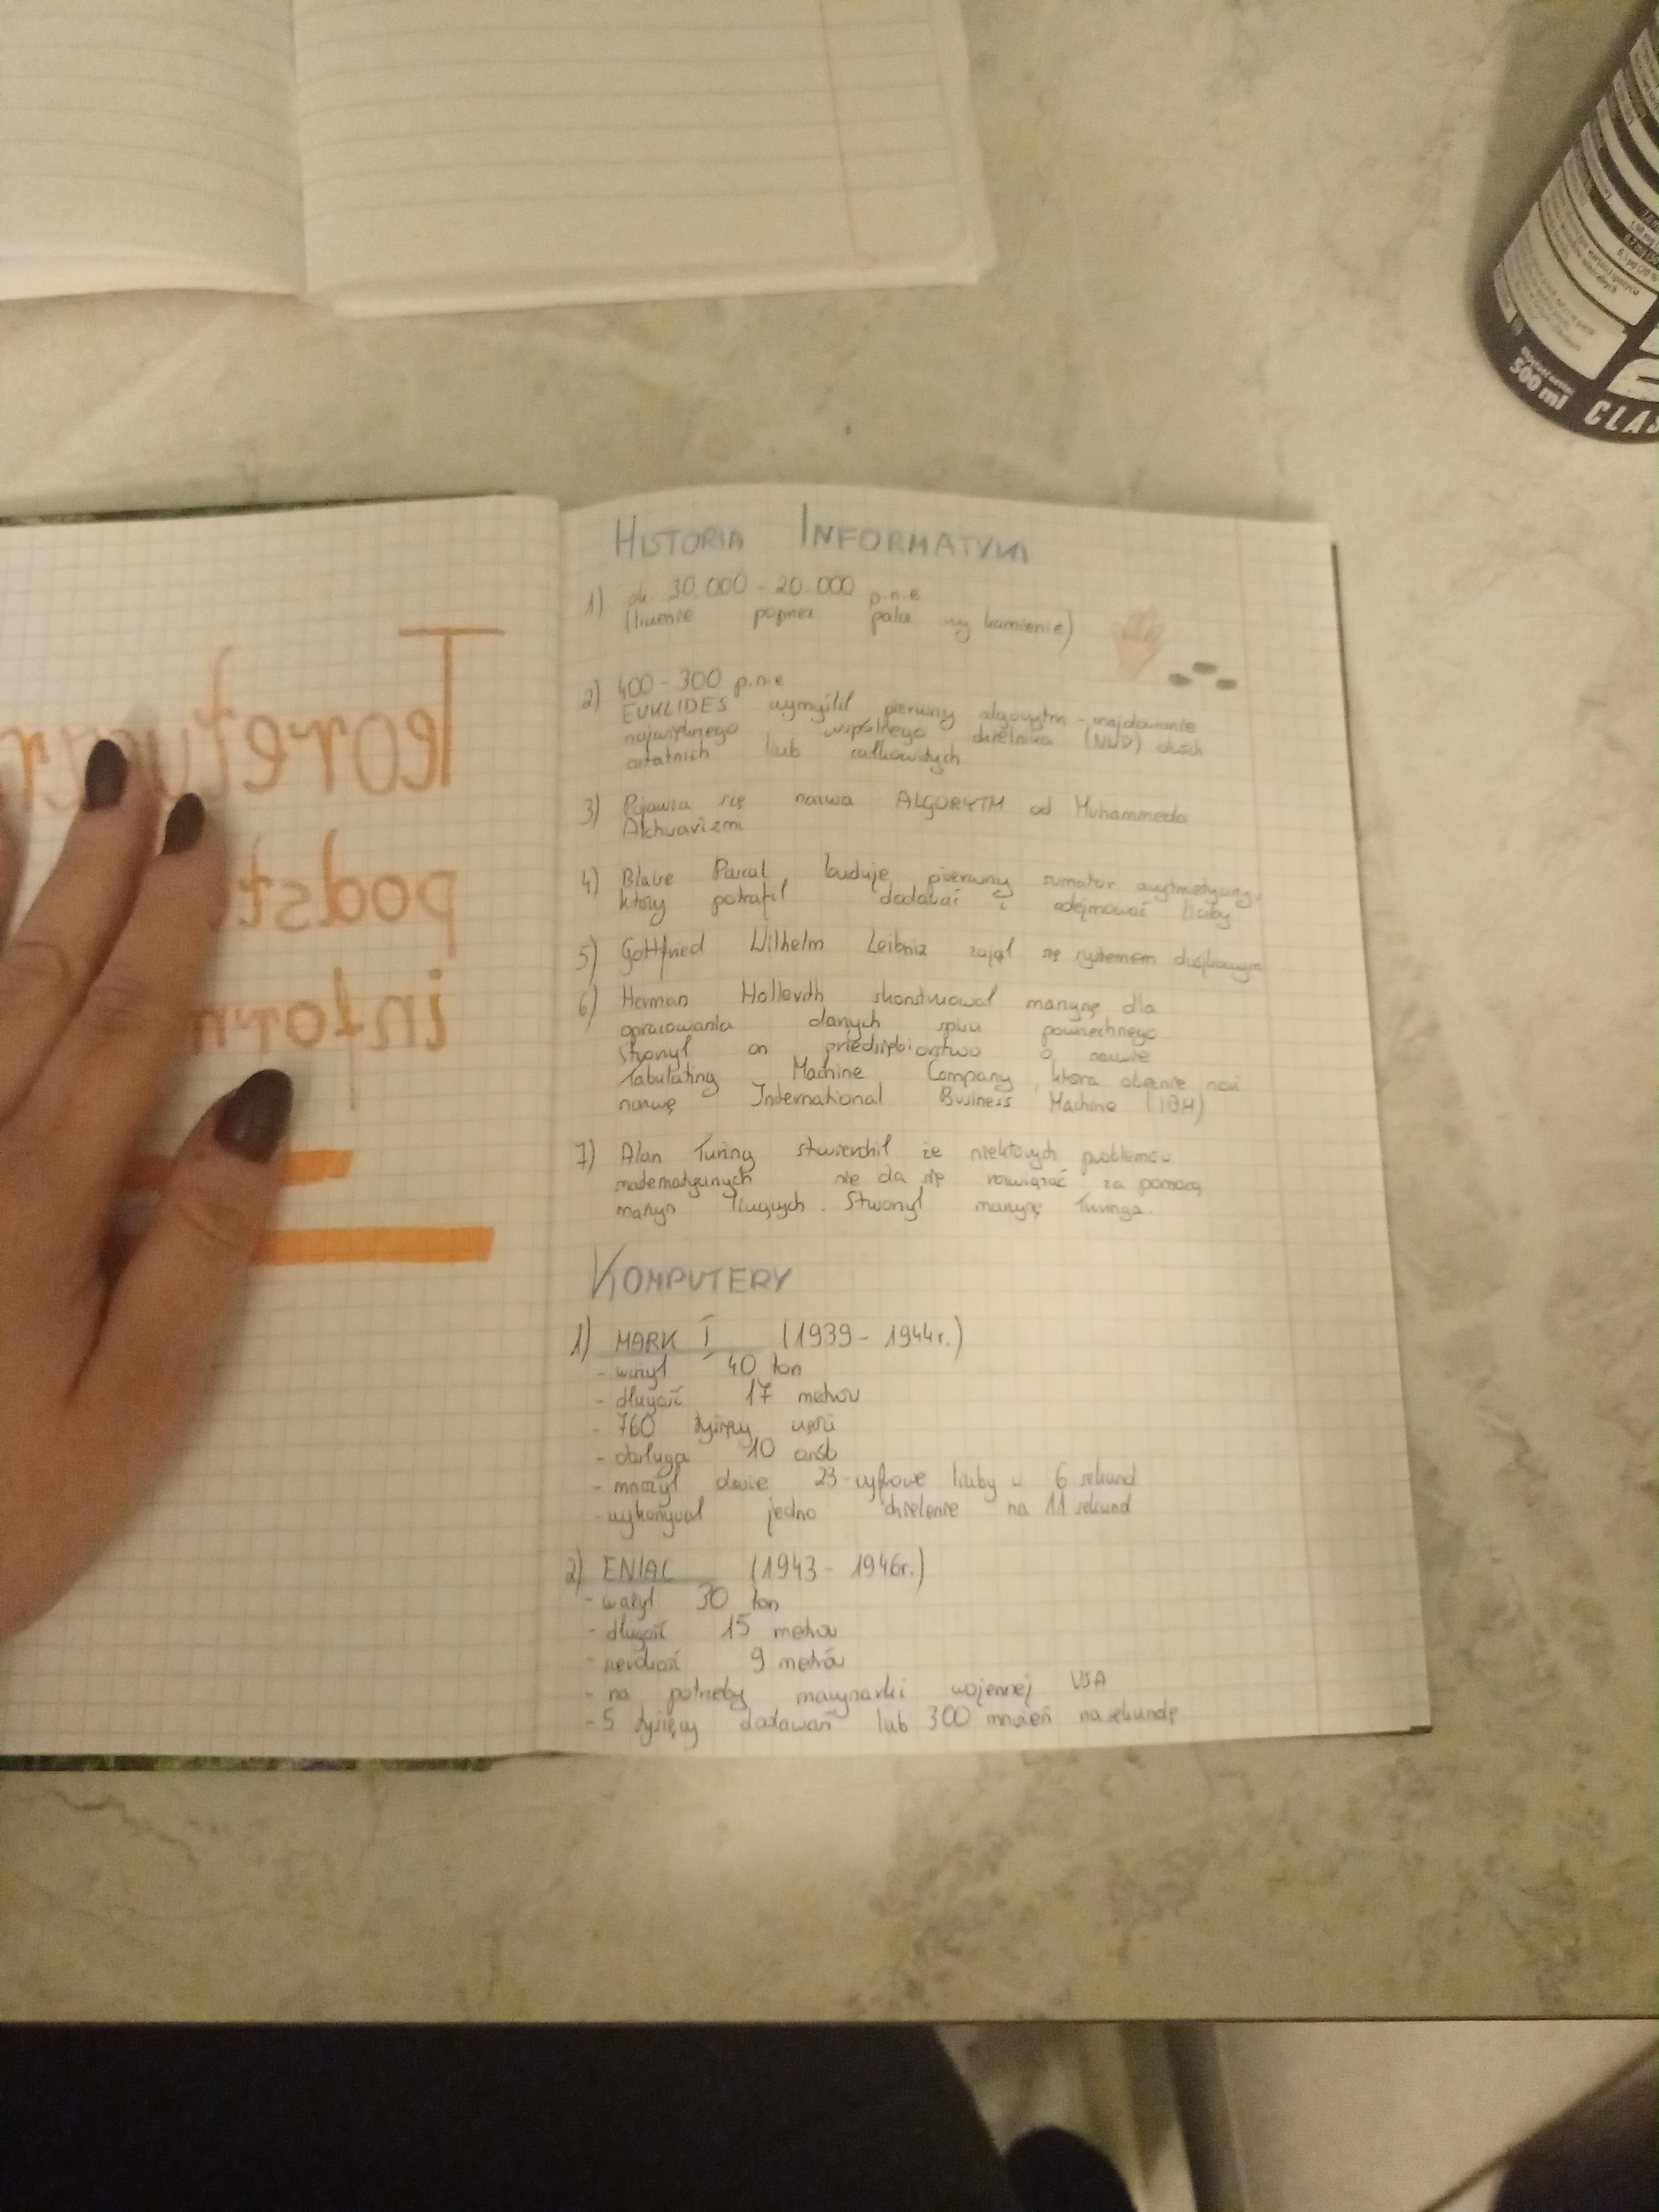 HISTORIA INFORMATYKI
1) ok 30.000 - 20.000 p.n.e
(liczenie poprzez palce czy kamienie)
2) 400 - 300 p.n.e
EUKLIDES wymyślił pierwszy algorytm - znajdowanie
największego wspólnego dzielnika (NWD) dwóch
liczb całkowitych
3) Pojawia się nazwa ALGORYTM od Muhammeda
Alchwarizmi
4) Blaise Pascal buduje pierwszy sumator arytmetyczny,
który potrafił dodawać i odejmować liczby
5) Gottfried Wilhelm Leibniz zajął się systemem dwójkowym
6) Herman Hollerith skonstruował maszynę dla
opracowania danych spisu powszechnego
stworzył on przedsiębiorstwo o nazwie
Tabulating Machine Company, która obecnie nosi
nazwę International Business Machine (IBM)
7) Alan Turing stwierdził że niektórych problemów
matematycznych nie da się rozwiązać za pomocą
maszyn liczących. Stworzył maszynę Turinga.
KOMPUTERY
1) MARK I (1939 - 1944r.)
- ważył 40 ton
- długość 17 metrów
- 760 tysięcy części
- obsługa 10 osób
- mnożył dwie 23-cyfrowe liczby w 6 sekund
- wykonywał jedno dzielenie na 11 sekund
2) ENIAC (1943 - 1946r.)
- ważył 30 ton
- długość 15 metrów
- szerokość 9 metrów
- na potrzeby marynarki wojennej USA
- 5 tysięcy dodawań lub 300 mnożeń na sekundę
podst
inform
500 ml
CLAS